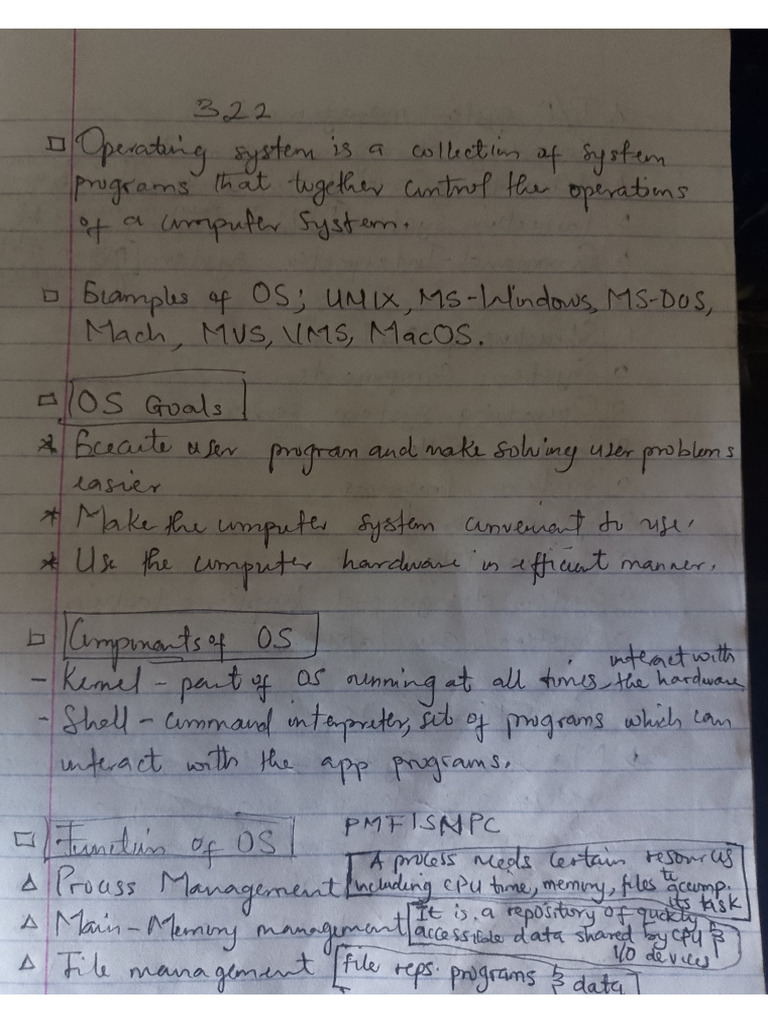 322
□ Operating system is a collection of system
programs that together control the operations
of a computer system.
□ Examples of OS; UNIX, MS-Windows, MS-DOS,
Mach, MVS, VMS, MacOS.
□ OS Goals
* Execute user program and make solving user problems
easier
* Make the computer system convenient to use.
* Use the computer hardware in efficient manner.
□ Components of OS
- Kernel - part of OS running at all times, interact with
the hardware
- Shell - command interpreter, set of programs which can
interact with the app programs.
□ Function of OS PMFISNPC
△ Process Management A process needs certain resources
including CPU time, memory, files to accomp.
its task
△ Main-Memory management It is a repository of quickly
accessible data shared by CPU &
I/O devices
△ File management file reps. programs & data